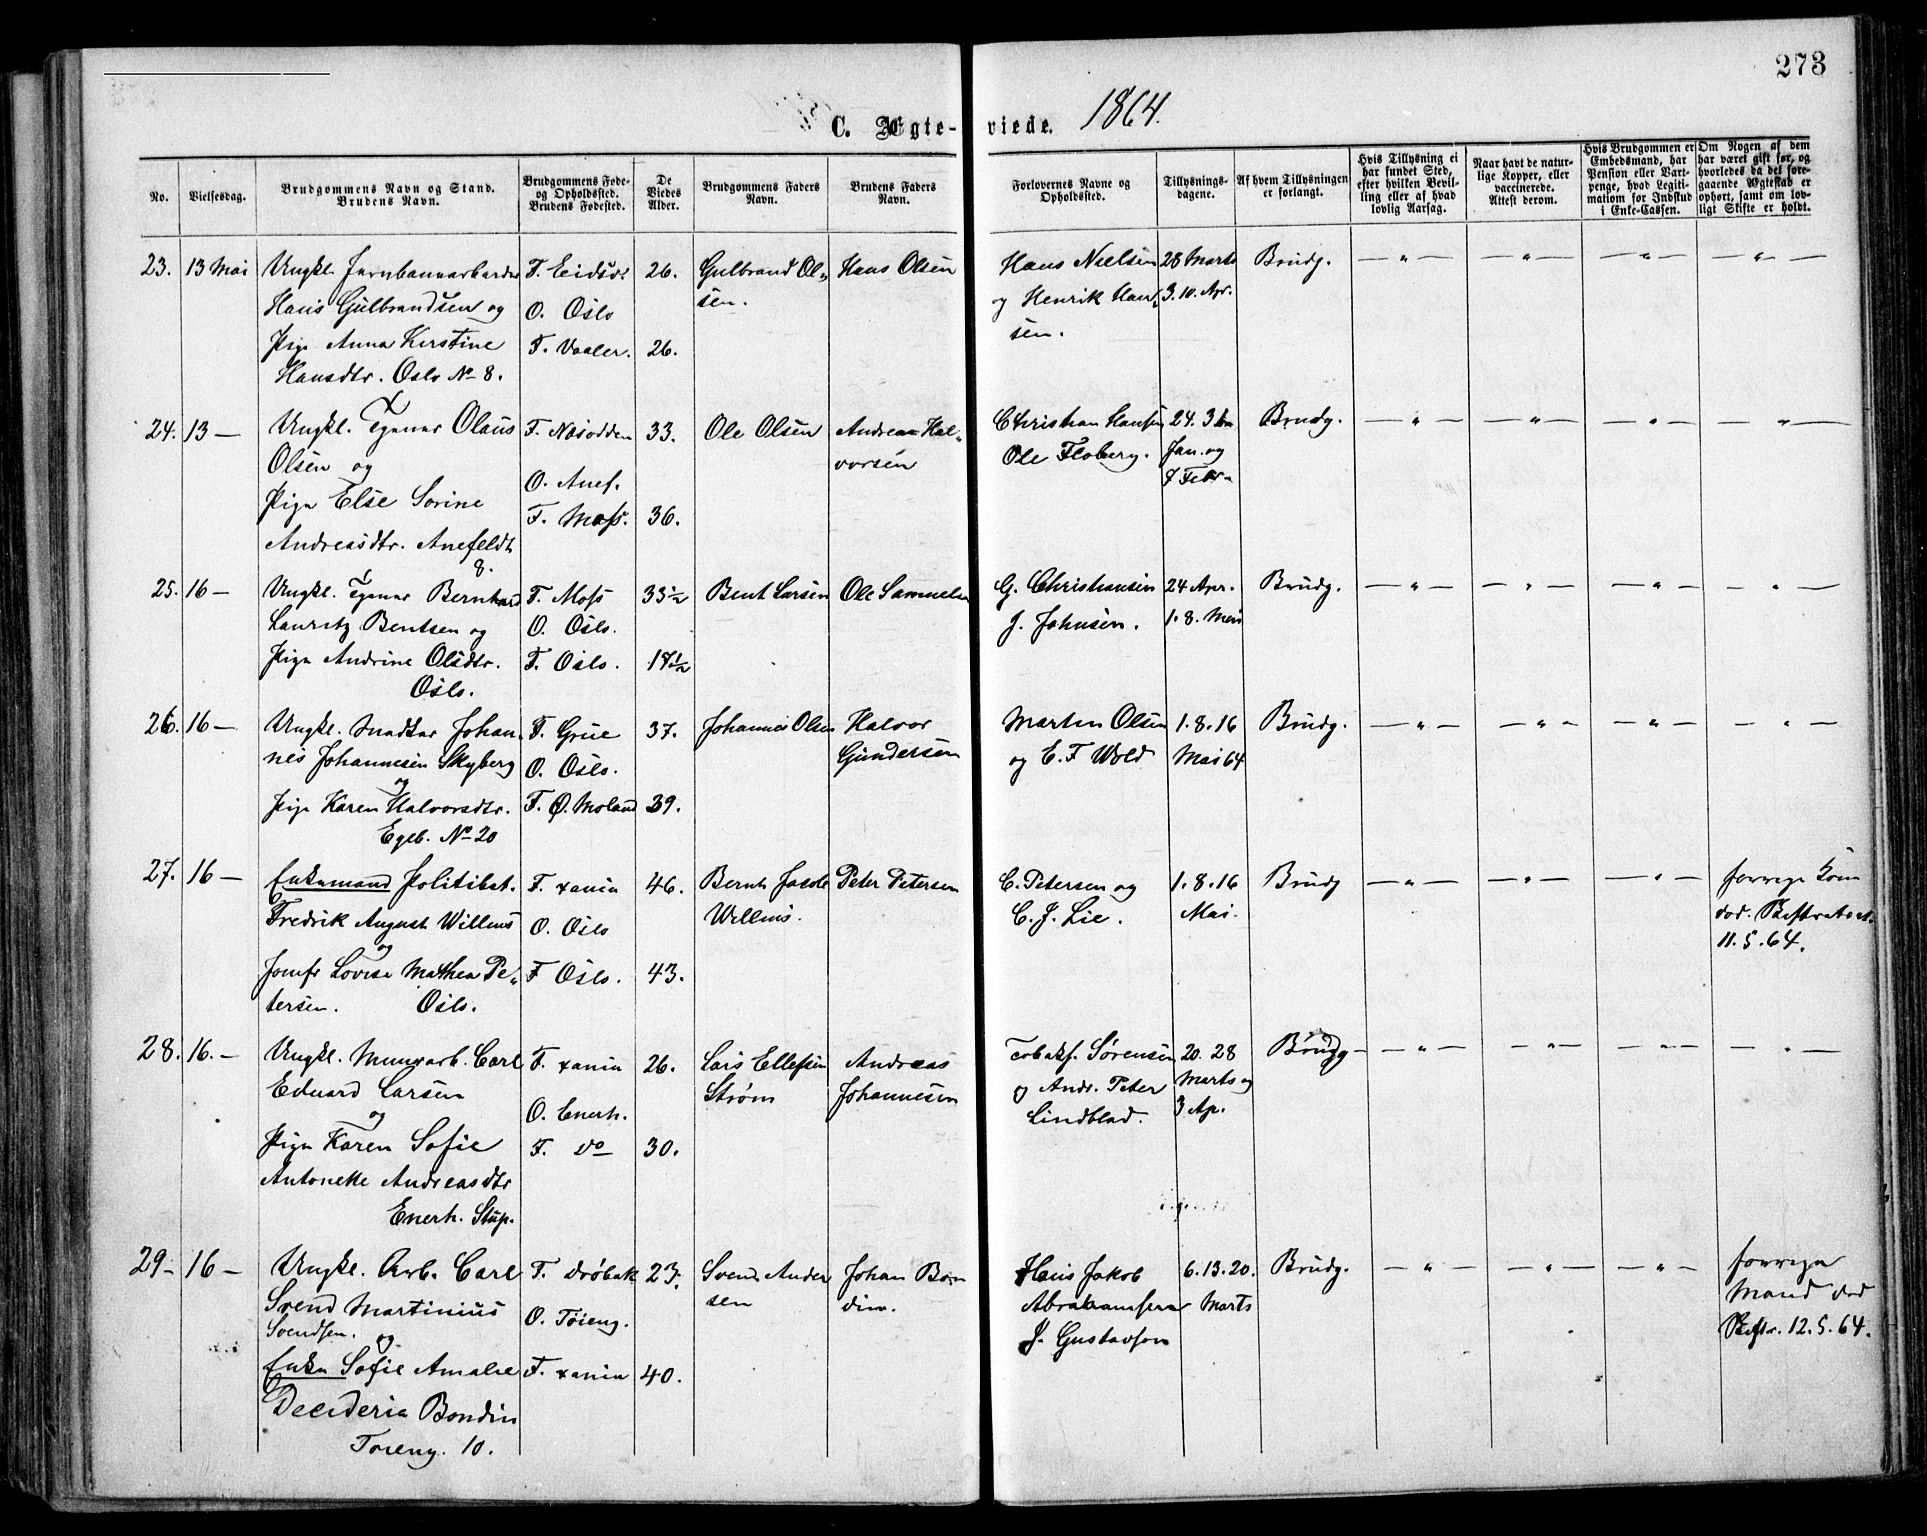 273
C. Ægteviede. 1864.
No.
Vielsesdag.
Brudgommens Navn og Stand.
Brudens Navn.
Brudgommens Føde-
og Opholdssted.
Brudens Fødested.
De
Viedes
Alder.
Brudgommens Faders
Navn.
Brudens Faders
Navn.
Forlovernes Navne og
Opholdssted.
Tillysnings-
dagene.
Af hvem Tillysningen
er forlangt.
Hvis Tillysning ei
har fundet Sted,
efter hvilken Bevil-
ling eller af hvad
lovlig Aarsag.
Naar havt de natur-
lige Kopper, eller
vaccinerede.
Attest derom.
Hvis Brudgommen er
Embedsmand, har
Pension eller Vart-
penge, hvad Legiti-
mation for Indskud
i Enke-Cassen.
Om Nogen af dem
har været gift før, og
hvorledes da det fore-
gaaende Ægteskab er
ophørt, samt om lov-
ligt Skifte er holdt.
23. 13 Mai
Ungkl. Jernbanearbeider
Hans Gulbrandsen og
Pige Anna Kirstine
Hansdtr. Oslo No 8.
F. Eidsv.
O. Oslo
F. Vaaler.
26.
26.
Gulbrand Ol-
sen.
Hans Olsen
Hans Nielsen
og Henrik Han-
sen.
28 Marts
3. 10. Apr.
Brudg.
— " — — " — — " — — " —
24. 13 —
Ungkl. Olaus
Olsen og
Pige Else Sorine
Andreasdtr. Anefeldt
8.
F. Nesodden
O. Anef.
F. Moss.
33.
36.
Ole Olsen
Andreas Hal-
vorsen
Christian Hansen
Ole Floberg.
24. 31
Jan. og
7 Febr.
Brudg.
— " — — " — — " — — " —
25. 16 —
Ungkl. Bernhard
Lauritz Bentsen og
Pige Andrine Olsdtr.
Oslo.
F. Moss
O. Oslo.
F. Oslo.
33½
18½
Bent Larsen
Ole Samuelsen
G. Christiansen
J. Johnsen.
24 Apr.
1. 8. Mai
Brudg.
— " — — " — — " — — " —
26. 16 —
Ungkl. Johan-
nes Johannesen Skyberg
og
Pige Karen Halvorsdtr.
Egeb. No 20
F. Grue
O. Oslo.
F. Ø. Moland
37.
39.
Johannes Olsen
Halvor
Gundersen
Martin Olsen
og E. F. Wold
1. 8. 16
Mai 64
Brudg.
— " — — " — — " — — " —
27. 16 —
Enkemand Politibet.
Fredrik August Willems
og
Jomfr Lovise Mathea Pe-
tersen. Oslo.
F. xania
O. Oslo
F Oslo.
46.
43.
Bernt Jacob
Willems.
Peter Petersen
C. Petersen og
C. J. Lie.
1. 8. 16
Mai.
Brudg
— " — — " — — " —
forrige Kone
dod. Skifteattest.
11. 5. 64.
28. 16. —
Ungkl. Murarb. Carl
Eduard Larsen
og
Pige Karen Sofie
Antonette Andreasdtr
Enerh. Stup.
F. xania
O. Enerh.
F. do
26.
30.
Lars Ellefsen
Strøm
Andreas
Johannesen
Sørensen
og Andr. Peter
Lindblad.
20. 28
Marts og
3 Ap.
Brudg
— " — — " — — " — — " —
29 — 16 —
Ungkl. Arb. Carl
Svend Martinius
Svendsen.
og
Enke Sofie Amalie
Decideria Bondin
Toieng. 10.
F. Drøbak
O. Töieng.
F. xania
23.
40.
Svend Ander
sen
Johan Bon
din.
Hans Jakob
Abrahamsen
J. Gustavson
6. 13. 20.
Marts
Brudg.
— " — — " — — " —
forrige
Mand dod
12. 5. 64.